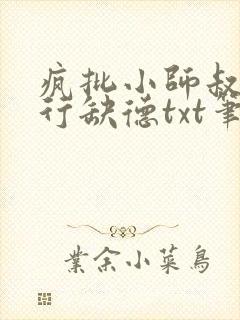 疯批小師叔
行缺德txt筆
業余小菜鳥